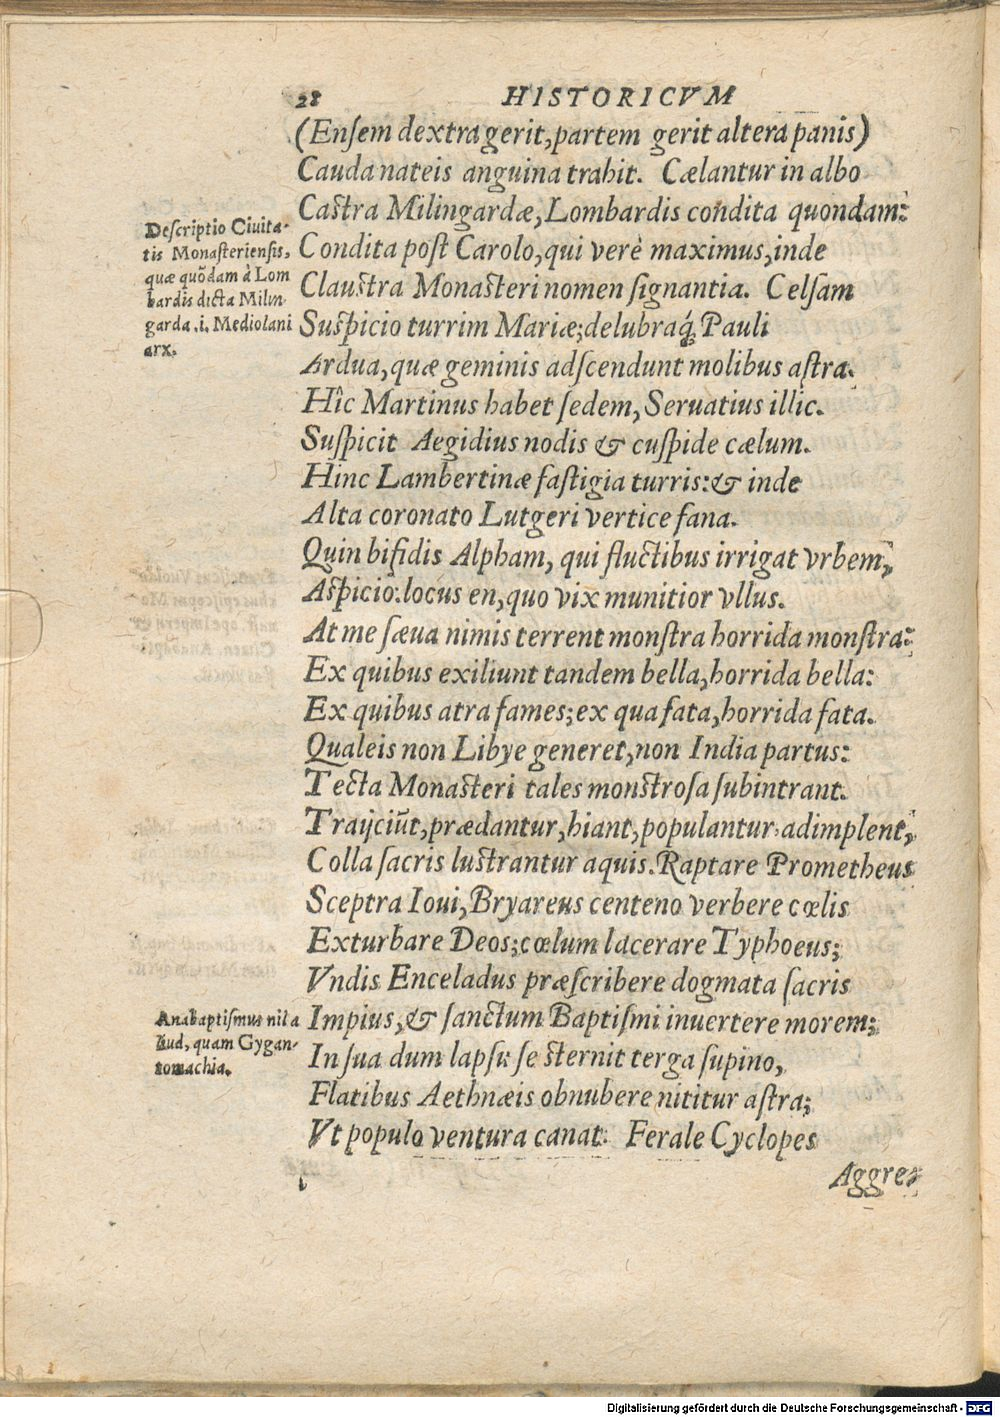 28 HISTORICVM
(Enſem dextra gerit, partem gerit altera panis)
Cauda nateis anguina trahit. Cælantur in albo
Caſtra Milingardæ, Lombardis condita quondam:
Condita poſt Carolo, qui verè maximus, inde
Clauſtra Monaſteri nomen ſignantia. Celſam
Suſpicio turrim Mariæ; delubraq́; Pauli
Ardua, quæ geminis adſcendunt molibus aſtra.
Hîc Martinus habet ſedem, Seruatius illic.
Suſpicit Aegidius nodis & cuſpide cælum.
Hinc Lambertinæ faſtigia turris: & inde
Alta coronato Lutgeri vertice fana.
Quin bifidis Alpham, qui fluctibus irrigat vrbem,
Aſpicio: locus en, quo vix munitior vllus.
At me ſæua nimis terrent monſtra horrida monſtra:
Ex quibus exiliunt tandem bella, horrida bella:
Ex quibus atra fames; ex qua fata, horrida fata.
Qualeis non Libye generet, non India partus:
Tecta Monaſteri tales monſtroſa ſubintrant.
Traijciũt, prædantur, hiant, populantur, adimplent,
Colla ſacris luſtrantur aquis. Raptare Prometheus
Sceptra Ioui, Bryareus centeno verbere cœlis
Exturbare Deos; cœlum lacerare Typhoeus;
Vndis Enceladus præſcribere dogmata ſacris
Impius, & ſanctum Baptiſmi inuertere morem;
In ſua dum lapſu ſe ſternit terga ſupino,
Flatibus Aethnæis obnubere nititur aſtra;
Vt populo ventura canat. Ferale Cyclopes
Aggre-
Deſcriptio Ciuita-
tis Monaſterienſis,
quæ quõdam à Lom
bardis dicta Milin-
garda .i. Mediolani
arx.
Anabaptiſmus nil a
liud, quam Gygan-
tomachia.
Digitalisierung gefördert durch die Deutsche Forschungsgemeinschaft - DFG